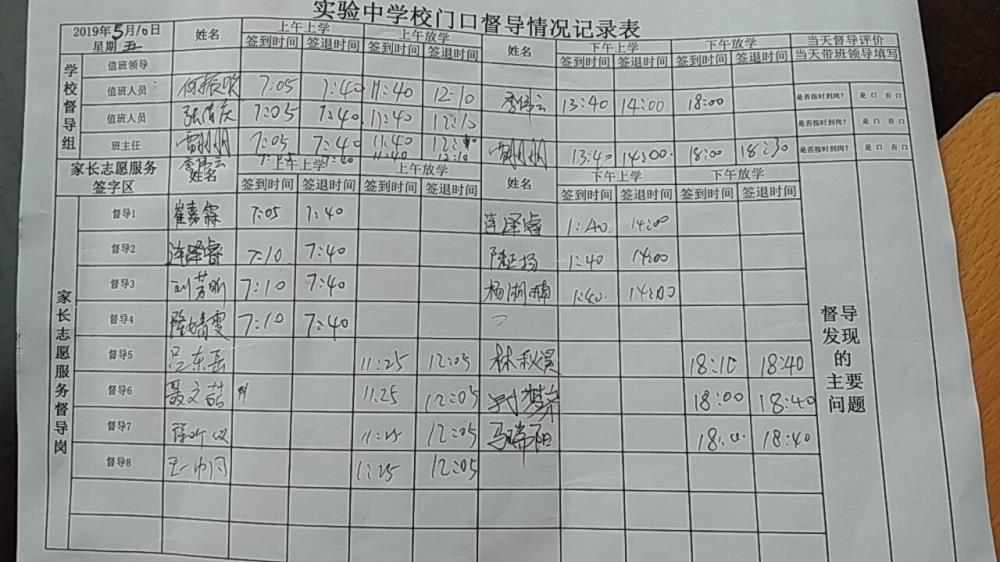 实验中学校门口督导情况记录表
2019年5月10日 星期五 姓名 上午上学 上午放学 姓名 下午上学 下午放学 当天督导评价
签到时间 签退时间 签到时间 签退时间 签到时间 签退时间 签到时间 签退时间 当天带班领导填写
学校督导组
值班领导
值班人员 何振 7:05 7:40 11:40 12:10 李伟云 13:40 14:00 18:00 是否按时到岗? 是口 否口
值班人员 张倩 7:05 7:40 11:40 12:10 是否按时到岗? 是口 否口
班主任 7:05 7:40 11:40 13:40 14:00 18:00 18:30 是否按时到岗? 是口 否口
李伟云 11:40 12:10
家长志愿服务签字区 姓名 上午上学 上午放学 姓名 下午上学 下午放学
签到时间 签退时间 签到时间 签退时间 签到时间 签退时间 签到时间 签退时间
家长志愿服务督导岗
督导1 崔嘉霖 7:05 7:40 连泽睿 1:40 14:00
督导2 连泽睿 7:10 7:40 1:40 14:00
督导3 刘芳昕 7:10 7:40 杨湘楠 1:40 14:00
督导4 隆婧雯 7:10 7:40
督导5 吕东岳 11:25 12:05 林秋滢 18:10 18:40
督导6 聂文喆 11:25 12:05 18:00 18:40
督导7 11:25 12:05 马瑞阳 18:00 18:40
督导8 11:25 12:05
督导发现的主要问题